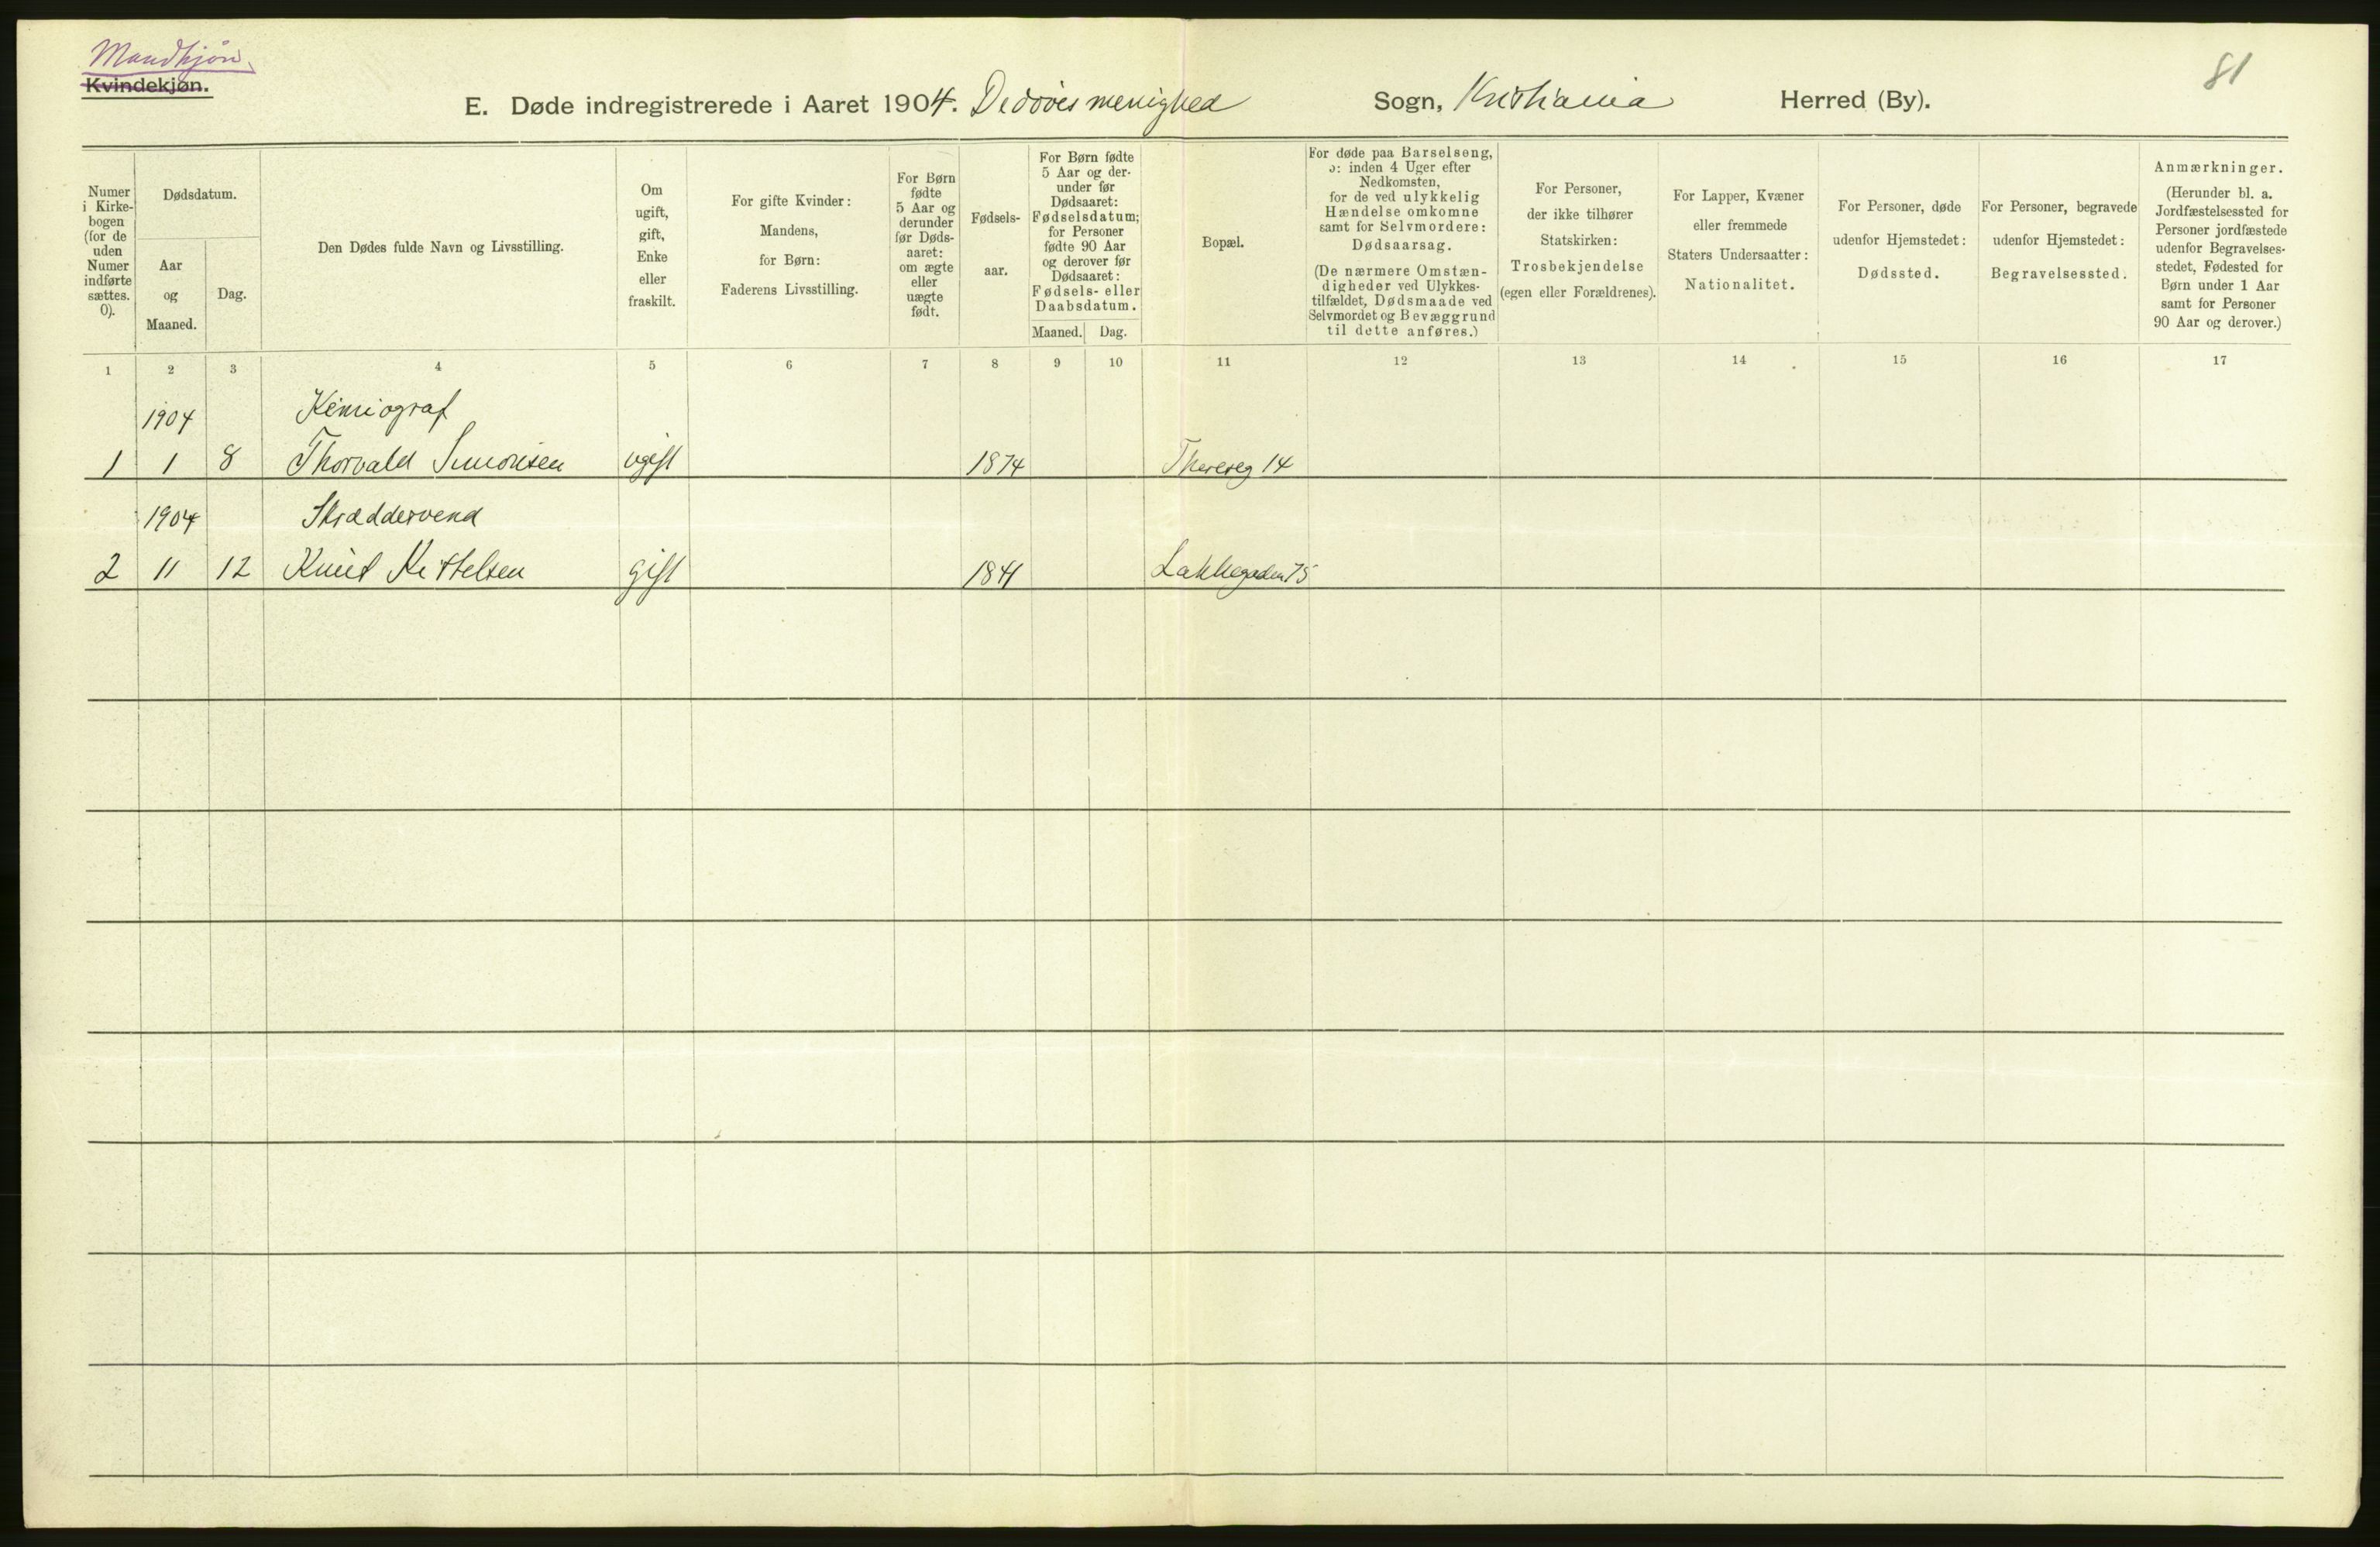 81
Mandkjøn.
Kvindekjøn.
E. Døde indregistrerede i Aaret 1904. Dedøves menighed Sogn, Kristiania Herred (By).
Numer i Kirke-bogen (for de uden Numer indførte sættes. 0).
Dødsdatum.
Aar og Maaned.
Dag.
Den Dødes fulde Navn og Livsstilling.
Om ugift, gift, Enke eller fraskilt.
For gifte Kvinder: Mandens, for Børn: Faderens Livsstilling.
For Børn fødte 5 Aar og derunder før Døds-aaret: om ægte eller uægte født.
Fødsels-aar.
For Børn fødte 5 Aar og der-under før Dødsaaret: Fødselsdatum; for Personer fødte 90 Aar og derover før Dødsaaret: Fødsels- eller Daabsdatum.
Maaned. Dag.
Bopæl.
For døde paa Barselseng, ɔ: inden 4 Uger efter Nedkomsten, for de ved ulykkelig Hændelse omkomne samt for Selvmordere: Dødsaarsag.
(De nærmere Omstæn-digheder ved Ulykkes-tilfældet, Dødsmaade ved Selvmordet og Bevæggrund til dette anføres.)
For Personer, der ikke tilhører Statskirken: Trosbekjendelse (egen eller Forældrenes).
For Lapper, Kvæner eller fremmede Staters Undersaatter: Nationalitet.
For Personer, døde udenfor Hjemstedet: Dødssted.
For Personer, begravede udenfor Hjemstedet: Begravelsessted.
Anmærkninger.
(Herunder bl. a. Jordfæstelsessted for Personer jordfæstede udenfor Begravelses-stedet, Fødested for Børn under 1 Aar samt for Personer 90 Aar og derover.)
1 2 3 4 5 6 7 8 9 10 11 12 13 14 15 16 17
1904 Kemiograf
1 1 8 Thorvald Simonsen ugift 1874 Thereseg 14
1904 Skræddersvend
2 11 12 Knut Kittelsen gift 1841 Lakkegaden 75